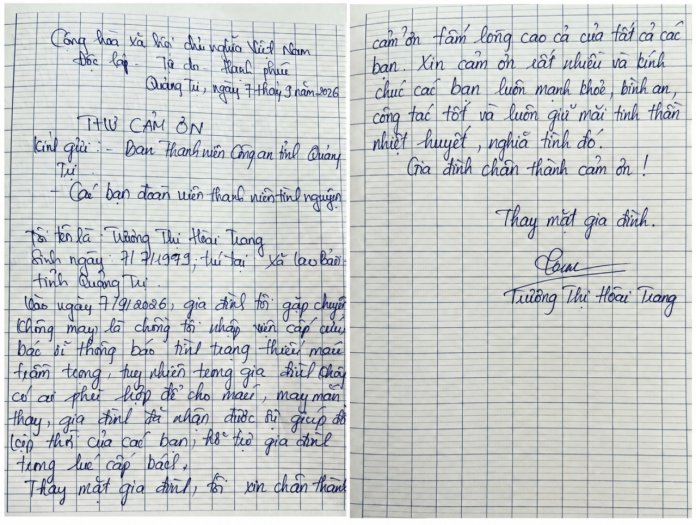 Cộng hòa xã hội chủ nghĩa Việt Nam
Độc lập - Tự do - Hạnh phúc
Quảng Trị, ngày 7 tháng 9 năm 2026
THƯ CẢM ƠN
Kính gửi: - Ban Thanh niên Công an tỉnh Quảng
Trị.
- Các bạn đoàn viên thanh niên tình nguyện
Tôi tên là: Trương Thị Hoài Trang
Sinh ngày: 7/7/1979, trú tại xã Lao Bảo
tỉnh Quảng Trị.
Vào ngày 7/9/2026, gia đình tôi gặp chuyện
không may là chồng tôi nhập viện cấp cứu
bác sĩ thông báo tình trạng thiếu máu
trầm trọng, tuy nhiên trong gia đình không
có ai phù hợp để cho máu, may mắn
thay, gia đình đã nhận được sự giúp đỡ
kịp thời của các bạn, hỗ trợ gia đình
trong lúc cấp bách.
Thay mặt gia đình, tôi xin chân thành
cảm ơn tấm lòng cao cả của tất cả các
bạn. Xin cảm ơn rất nhiều và kính
chúc các bạn luôn mạnh khoẻ, bình an,
công tác tốt và luôn giữ mãi tinh thần
nhiệt huyết, nghĩa tình đó.
Gia đình chân thành cảm ơn!
Thay mặt gia đình.
Trương Thị Hoài Trang